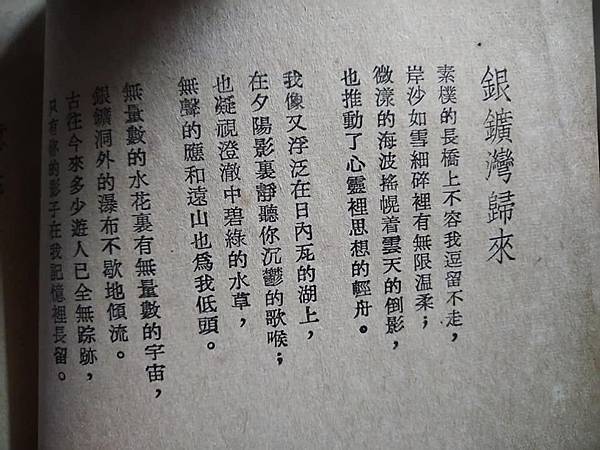 銀鑛灣歸來
素樸的長橋上不容我逗留不走，
岸沙如雪細碎裡有無限温柔；
微漾的海波搖幌着雲天的倒影，
也推動了心靈裡思想的輕舟。
我像又浮泛在日內瓦的湖上，
在夕陽影裏靜聽你沉鬱的歌喉；
也凝視澄澈中碧綠的水草，
無聲的應和遠山也為我低頭。
無量數的水花裏有無量數的宇宙，
銀鑛洞外的瀑布不歇地傾流。
古往今來多少遊人已全無踪跡，
只有你的影子在我記憶裡長留。